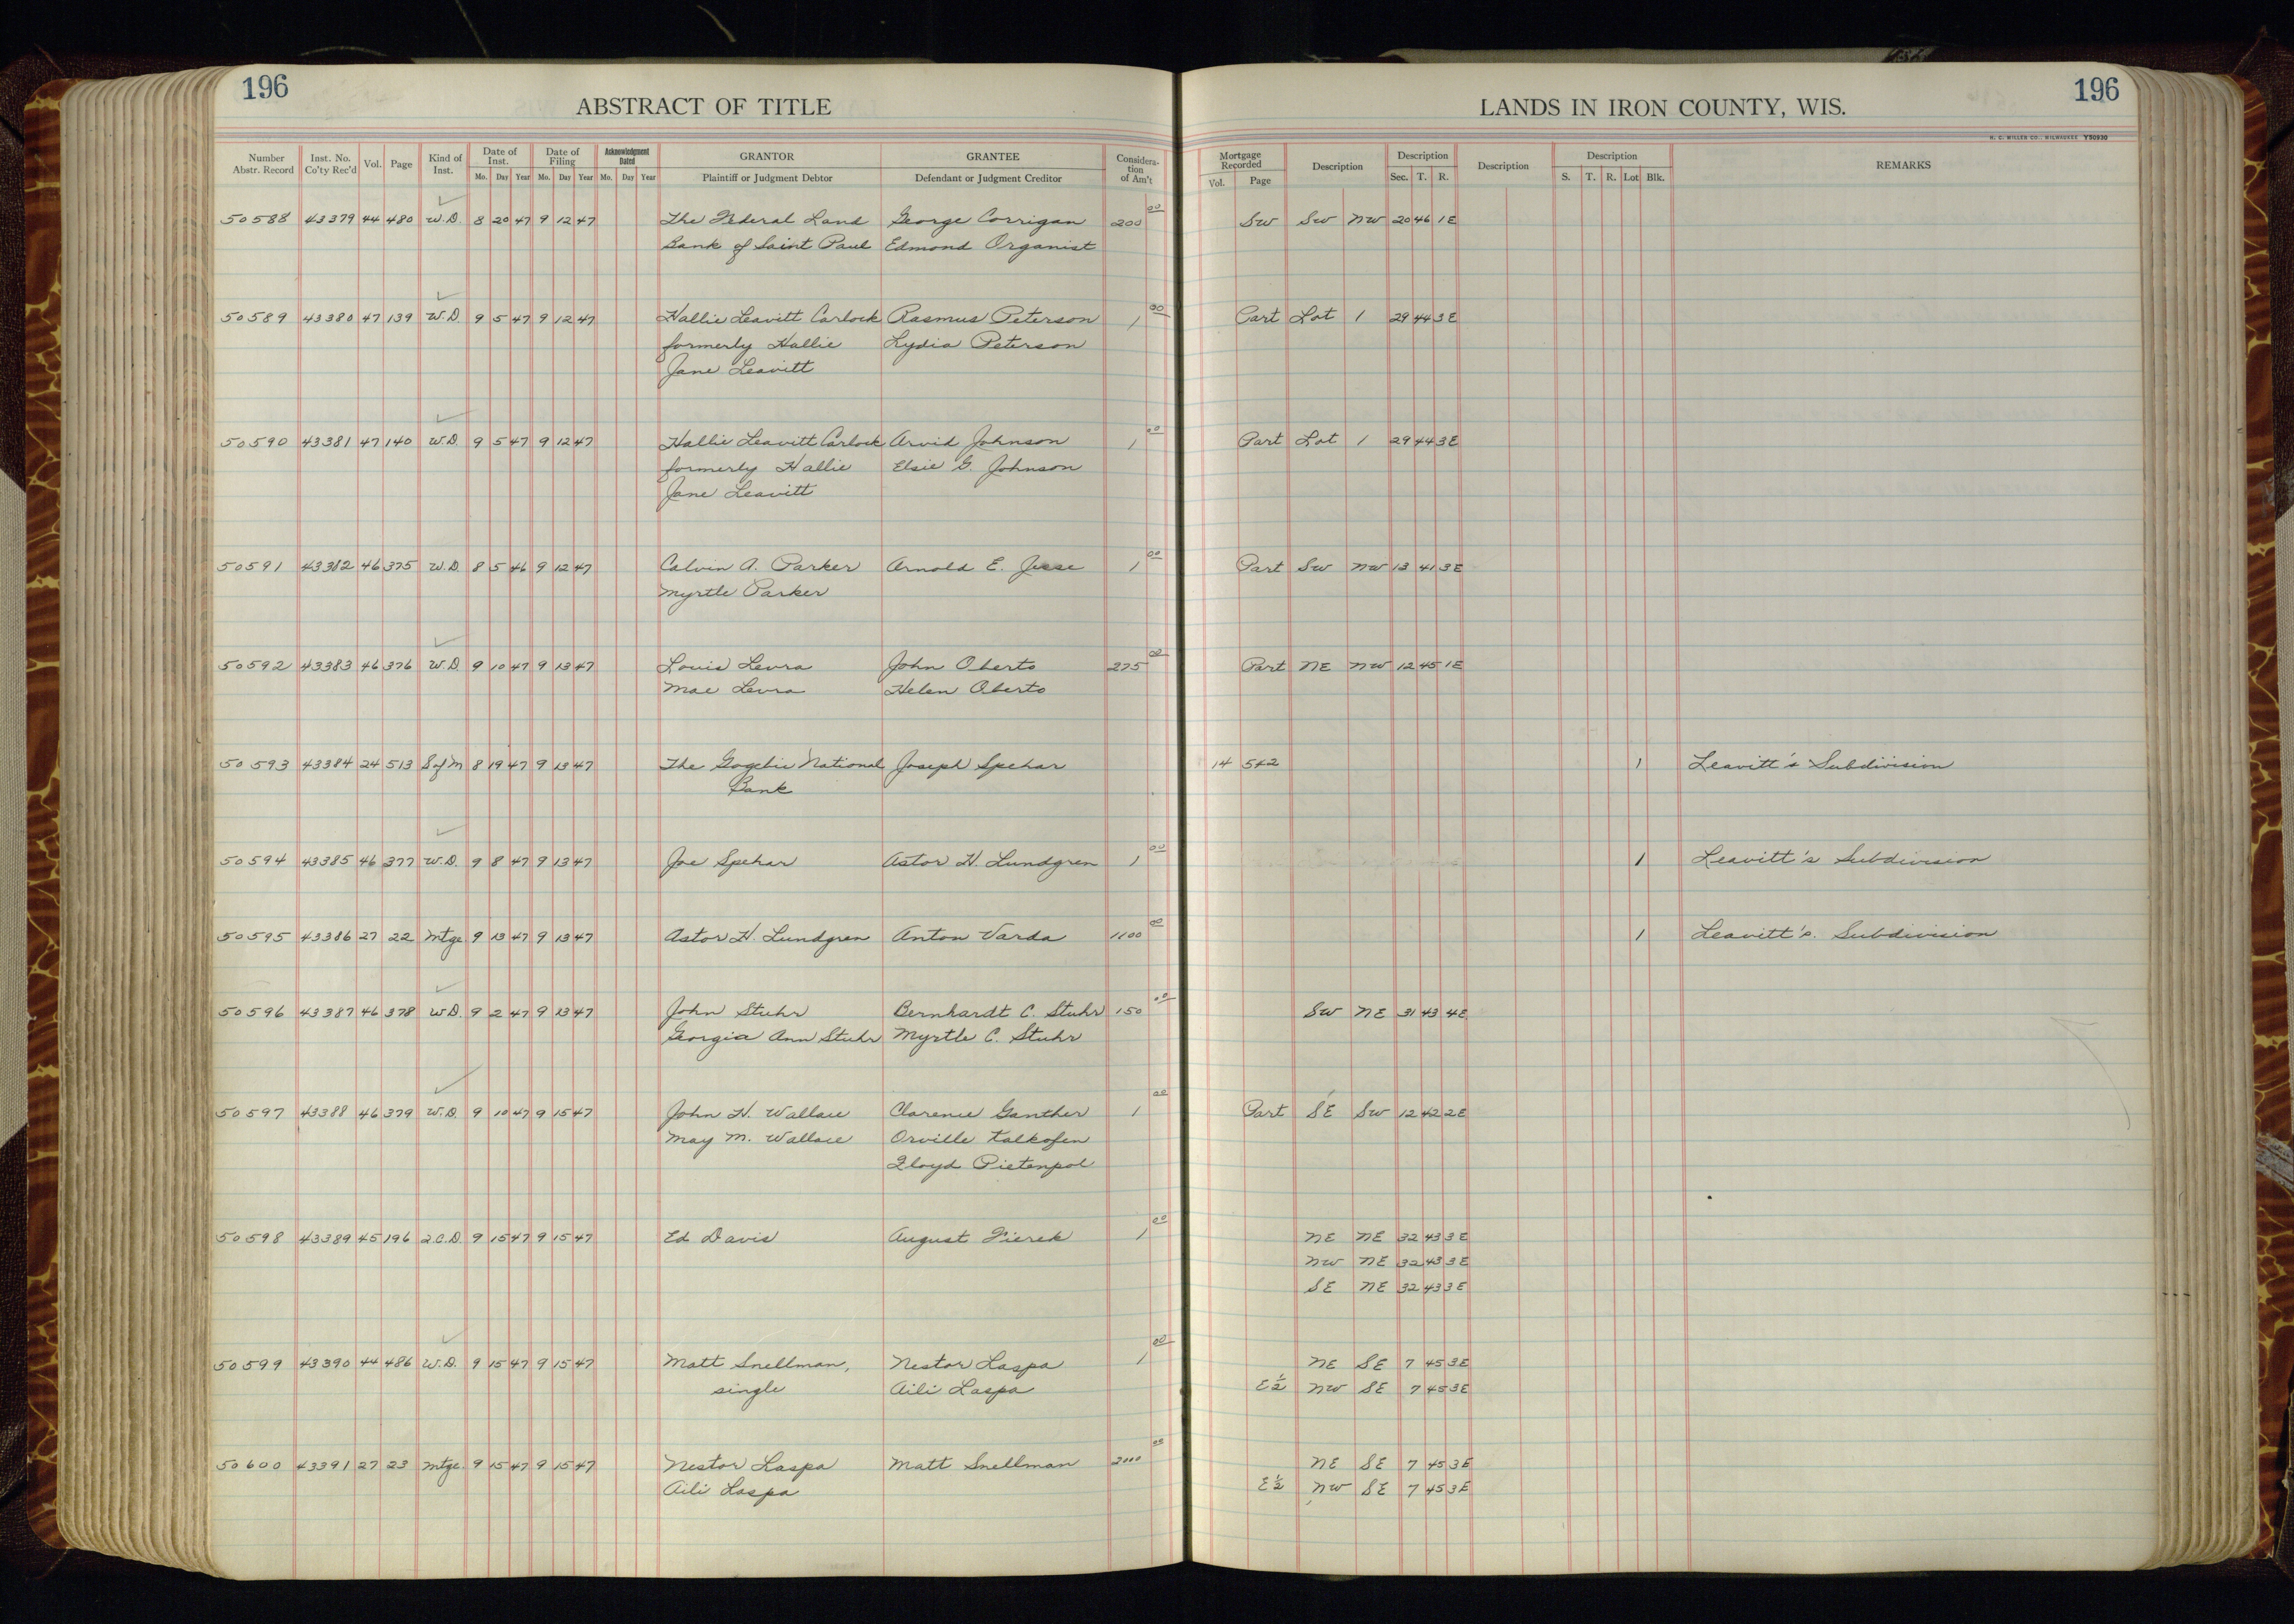 196
ABSTRACT OF TITLE
LANDS IN IRON COUNTY, WIS.
196
H. C. MILLER CO., MILWAUKEE Y50930
Number Abstr. Record Inst. No. Co'ty Rec'd Vol. Page Kind of Inst. Date of Inst. Mo. Day Year Date of Filing Mo. Day Year Acknowledgment Dated Mo. Day Year GRANTOR Plaintiff or Judgment Debtor GRANTEE Defendant or Judgment Creditor Considera-tion of Am't Mortgage Recorded Vol. Page Description Description Sec. T. R. Description Description S. T. R. Lot Blk. REMARKS
50588 43379 44 480 W.D. 8 20 47 9 12 47 The Federal Land George Corrigan 200 00 SW SW NW 20 46 1E
Bank of Saint Paul Edmond Organist
50589 43380 47 139 W.D. 9 5 47 9 12 47 Hallie Leavitt Carlock Rasmus Peterson 1 00 Part Lot 1 29 44 3E
formerly Hallie Lydia Peterson
Jane Leavitt
50590 43381 47 140 W.D. 9 5 47 9 12 47 Hallie Leavitt Carlock Arvid Johnson 1 00 Part Lot 1 29 44 3E
formerly Hallie Elsie G. Johnson
Jane Leavitt
50591 43382 46 375 W.D. 8 5 46 9 12 47 Calvin A. Parker Arnold E. Jesse 1 00 Part SW NW 13 41 3E
Myrtle Parker
50592 43383 46 376 W.D. 9 10 47 9 13 47 Louis Levra John Oberto 275 00 Part NE NW 12 45 1E
Mae Levra Helen Oberto
50593 43384 24 513 S of M 8 19 47 9 13 47 The Gogebic National Joseph Spehar 14 542 1 Leavitt's Subdivision
Bank
50594 43385 46 377 W.D. 9 8 47 9 13 47 Joe Spehar Astor H. Lundgren 1 00 1 Leavitt's Subdivision
50595 43386 27 22 Mtge 9 13 47 9 13 47 Astor H. Lundgren Anton Varda 1100 00 1 Leavitt's. Subdivision
50596 43387 46 378 W.D. 9 2 47 9 13 47 John Stuhr Bernhardt C. Stuhr 150 00 SW NE 31 43 4E
Georgia Ann Stuhr Myrtle C. Stuhr
50597 43388 46 379 W.D. 9 10 47 9 15 47 John H. Wallace Clarence Ganther 1 00 Part SE SW 12 42 2E
May M. Wallace Orville Kalkofen
Floyd Pietenpol
50598 43389 45 196 2.C.D. 9 15 47 9 15 47 Ed Davis August Fierek 1 00 NE NE 32 43 3E
NW NE 32 43 3E
SE NE 32 43 3E
50599 43390 44 486 W.D. 9 15 47 9 15 47 Matt Snellman, Nestor Laspa 1 00 NE SE 7 45 3E
single Aili Laspa E½ NW SE 7 45 3E
50600 43391 27 23 Mtge. 9 15 47 9 15 47 Nestor Laspa Matt Snellman 2000 00 NE SE 7 45 3E
Aili Laspa E½ NW SE 7 45 3E